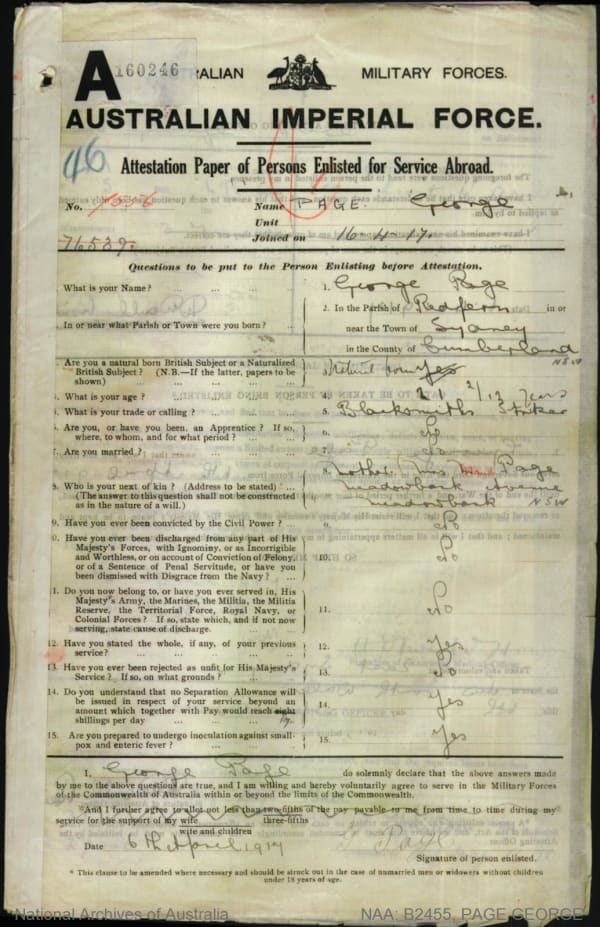 A 160246 RALIAN MILITARY FORCES.
AUSTRALIAN IMPERIAL FORCE.
46
Attestation Paper of Persons Enlisted for Service Abroad.
No. 7056 Name PAGE. George
Unit
76539. Joined on 16-4-17.
Questions to be put to the Person Enlisting before Attestation.
What is your Name? ... ... ... 1. George Page
2. In the Parish of Redfern in or
In or near what Parish or Town were you born? ... near the Town of Sydney
in the County of Cumberland
NSW
Are you a natural born British Subject or a Naturalized
British Subject? (N.B.—If the latter, papers to be
shown) ... ... ... Natural born Yes
What is your age? ... ... ... 4. 21 2/12 years
What is your trade or calling? ... ... 5. Blacksmiths Striker
Are you, or have you been, an Apprentice? If so,
where, to whom, and for what period? ... ... 6. No
Are you married? ... ... ... 7. No
8. Who is your next of kin? (Address to be stated) ... 8. Mother (Mrs Page
(The answer to this question shall not be constructed Meadowbank Avenue
as in the nature of a will.) Meadowbank NSW
9. Have you ever been convicted by the Civil Power? ... 9. No
0. Have you ever been discharged from any part of His
Majesty's Forces, with Ignominy, or as Incorrigible
and Worthless, or on account of Conviction of Felony, 10. No
or of a Sentence of Penal Servitude, or have you
been dismissed with Disgrace from the Navy? ...
1. Do you now belong to, or have you ever served in, His
Majesty's Army, the Marines, the Militia, the Militia
Reserve, the Territorial Force, Royal Navy, or 11. No
Colonial Forces? If so, state which, and if not now
serving, state cause of discharge.
12. Have you stated the whole, if any, of your previous
service? ... ... ... 12. Yes
13. Have you ever been rejected as unfit for His Majesty's
Service? If so, on what grounds? ... 13. No
14. Do you understand that no Separation Allowance will
be issued in respect of your service beyond an
amount which together with Pay would reach eight 14. Yes
shillings per day ... ... ...
15. Are you prepared to undergo inoculation against small-
pox and enteric fever? ... ... ... 15. Yes
I, George Page do solemnly declare that the above answers made
by me to the above questions are true, and I am willing and hereby voluntarily agree to serve in the Military Forces
of the Commonwealth of Australia within or beyond the limits of the Commonwealth.
*And I further agree to allot not less than two-fifths of the pay payable to me from time to time during my
service for the support of my wife three-fifths
wife and children
Date 6th April 1917 G Page
Signature of person enlisted.
* This clause to be amended where necessary and should be struck out in the case of unmarried men or widowers without children
under 18 years of age.
National Archives of Australia NAA: B2455, PAGE GEORGE